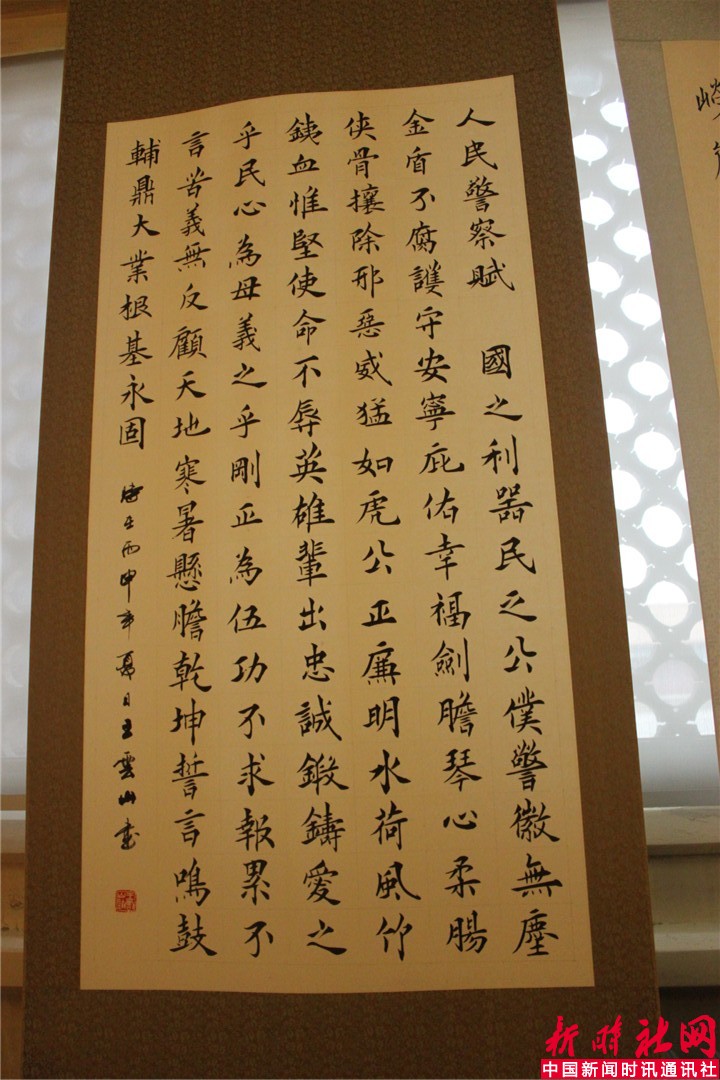 人民警察賦 國之利器民之公僕警徽無塵
金盾不腐護守安寧庇佑幸福劍膽琴心柔腸
俠骨攘除邪惡威猛如虎公正廉明水荷風竹
銕血惟堅使命不辱英雄輩出忠誠鍛鑄愛之
乎民心為母義之乎剛正為伍功不求報累不
言苦義無反顧天地寒暑懸膽乾坤誓言鳴鼓
輔鼎大業根基永固 丙申年夏日王雲山書
新时社网
中国新闻时讯通讯社